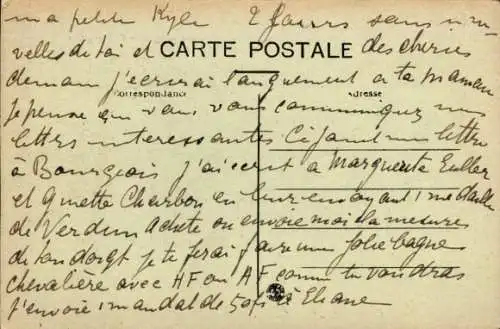 ma petite Kyle 2 jours sans nou
velles de toi et CARTE POSTALE des cheries
demain j'ecrirai longuement a ta maman
Correspondance Adresse
je pense que vous vous communiquez mes
lettres interessantes Ci joint une lettre
à Bourgeois j'ai ecrit a Marguerite Euller
et Ginette Cherbon en leur envoyant 1 medaille
de Verdun Achete ou envoie moi la mesure
de ton doigt je te ferai faire une jolie bague
chevalière avec HF ou AF comme tu voudras
J'envoie 1 mandat de 50f à Eliane